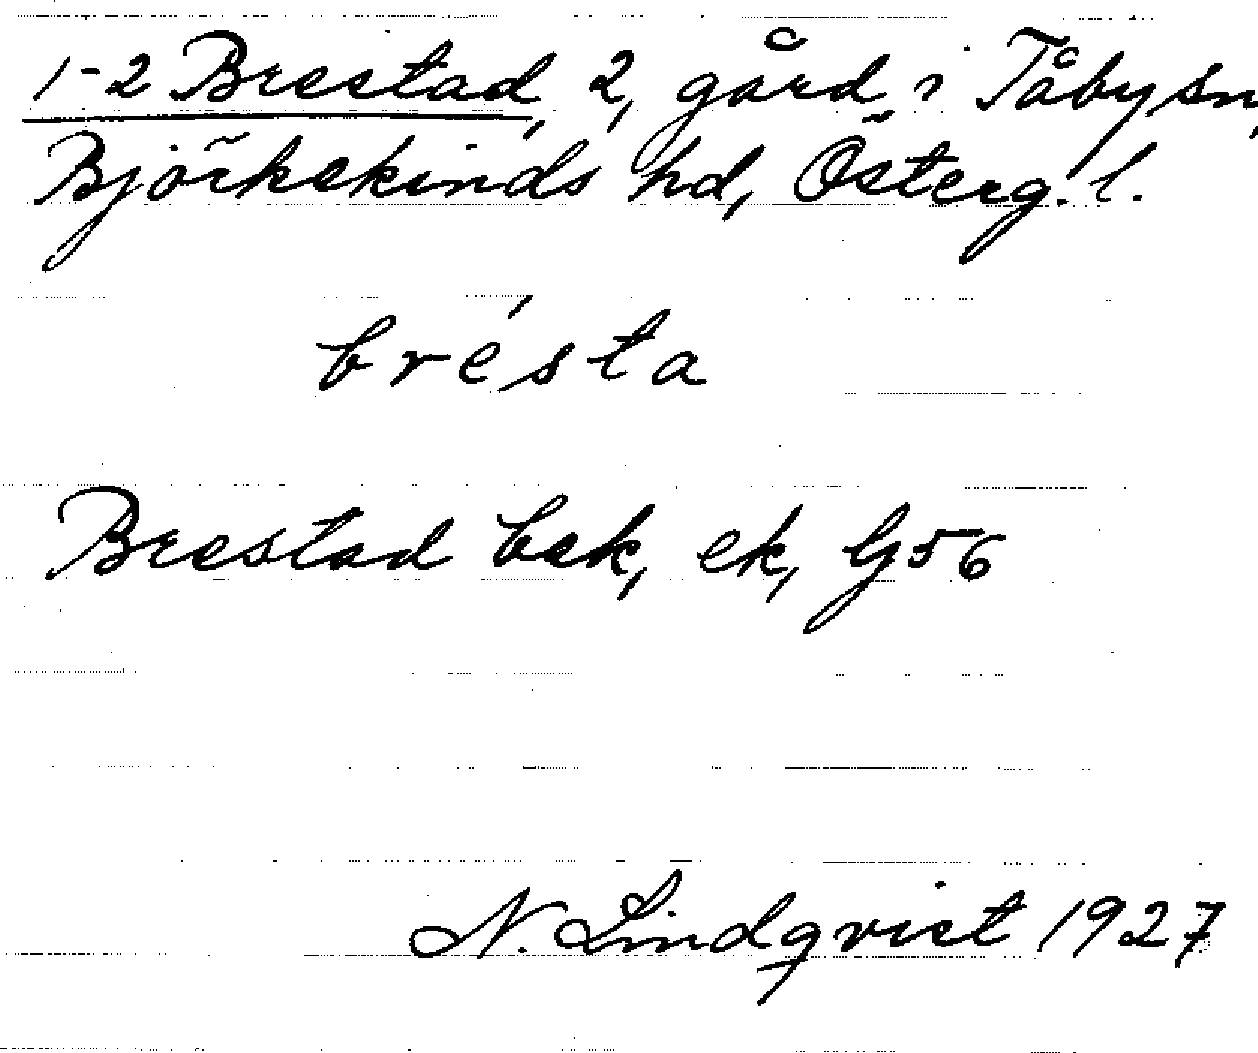 1-2 Brestad, 2, gård, i Tåby sn,
Björkekinds hd, Österg. l.
brésta
Brestad bek, ek, G56
N. Lindqvist 1927